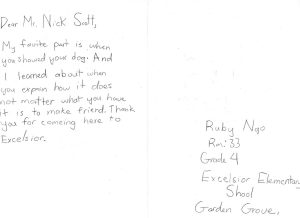 Dear Mr. Nick Scott,
My favite part is when
you showed your dog. And
I learned about when
you explain how it does
not matter what you have
it is to make friend. Thank
you for comeing here to
Excelsior.
Ruby Ngo
Rm: 33
Grade 4
Excelsior Elementary
Shool
Garden Grove,